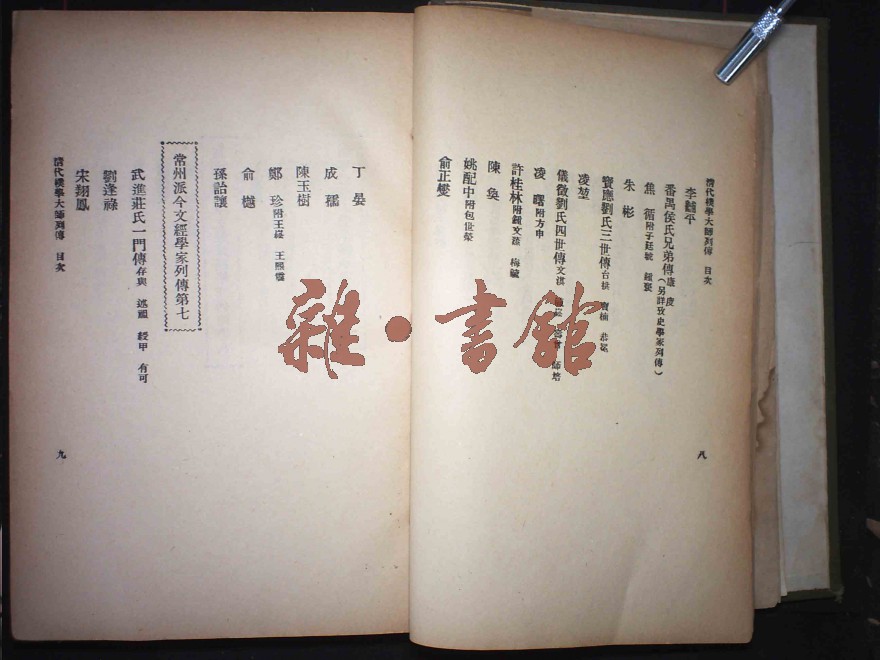 清代樸學大師列傳 目次
李黼平
番禺侯氏兄弟傳康 度(另詳攷史學家列傳)
焦循附子廷琥 鍾褱
朱彬
寶應劉氏三世傳台拱 寶楠 恭冕
凌堃
儀徵劉氏四世傳文淇 師培
凌曙附方申
許桂林附 梅毓
陳奐
姚配中附包世榮
俞正燮
八
丁晏
成孺
陳玉樹
鄭珍附
俞樾
孫詒讓
常州派今文經學家列傳第七
武進莊氏一門傳存與 述祖 綬甲 有可
劉逢祿
宋翔鳳
清代樸學大師列傳 目次
九
雜·書館